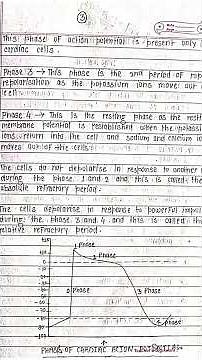 3
This phase of action potential is present only
cardiac cells.
Phase 3 → This phase is the end period of rap
repolarisation as the potassium ions move out
cell
Phase 4 → This is the resting phase as the rest
membrane potential is reestablished when the potassi
ions return into the cell and sodium and calcium
moves out of the cells
The cells do not depolarise in response to another
during the phase 1 and 2 and this is called the
absolute refractory period.
The cells depolarise in response to powerful
during the phase 3 and 4 and this is called
relative refractory period.
1 phase
2 phase
0 phase
3 phase
4 phase
PHASES OF CARDIAC ACTION POTENTIAL